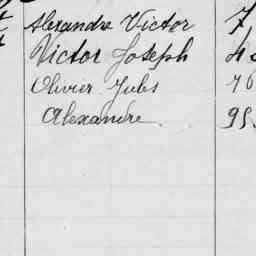 Alexandre Victor 7
Victor Joseph 4
Olivier Jules 76
Alexandre 95